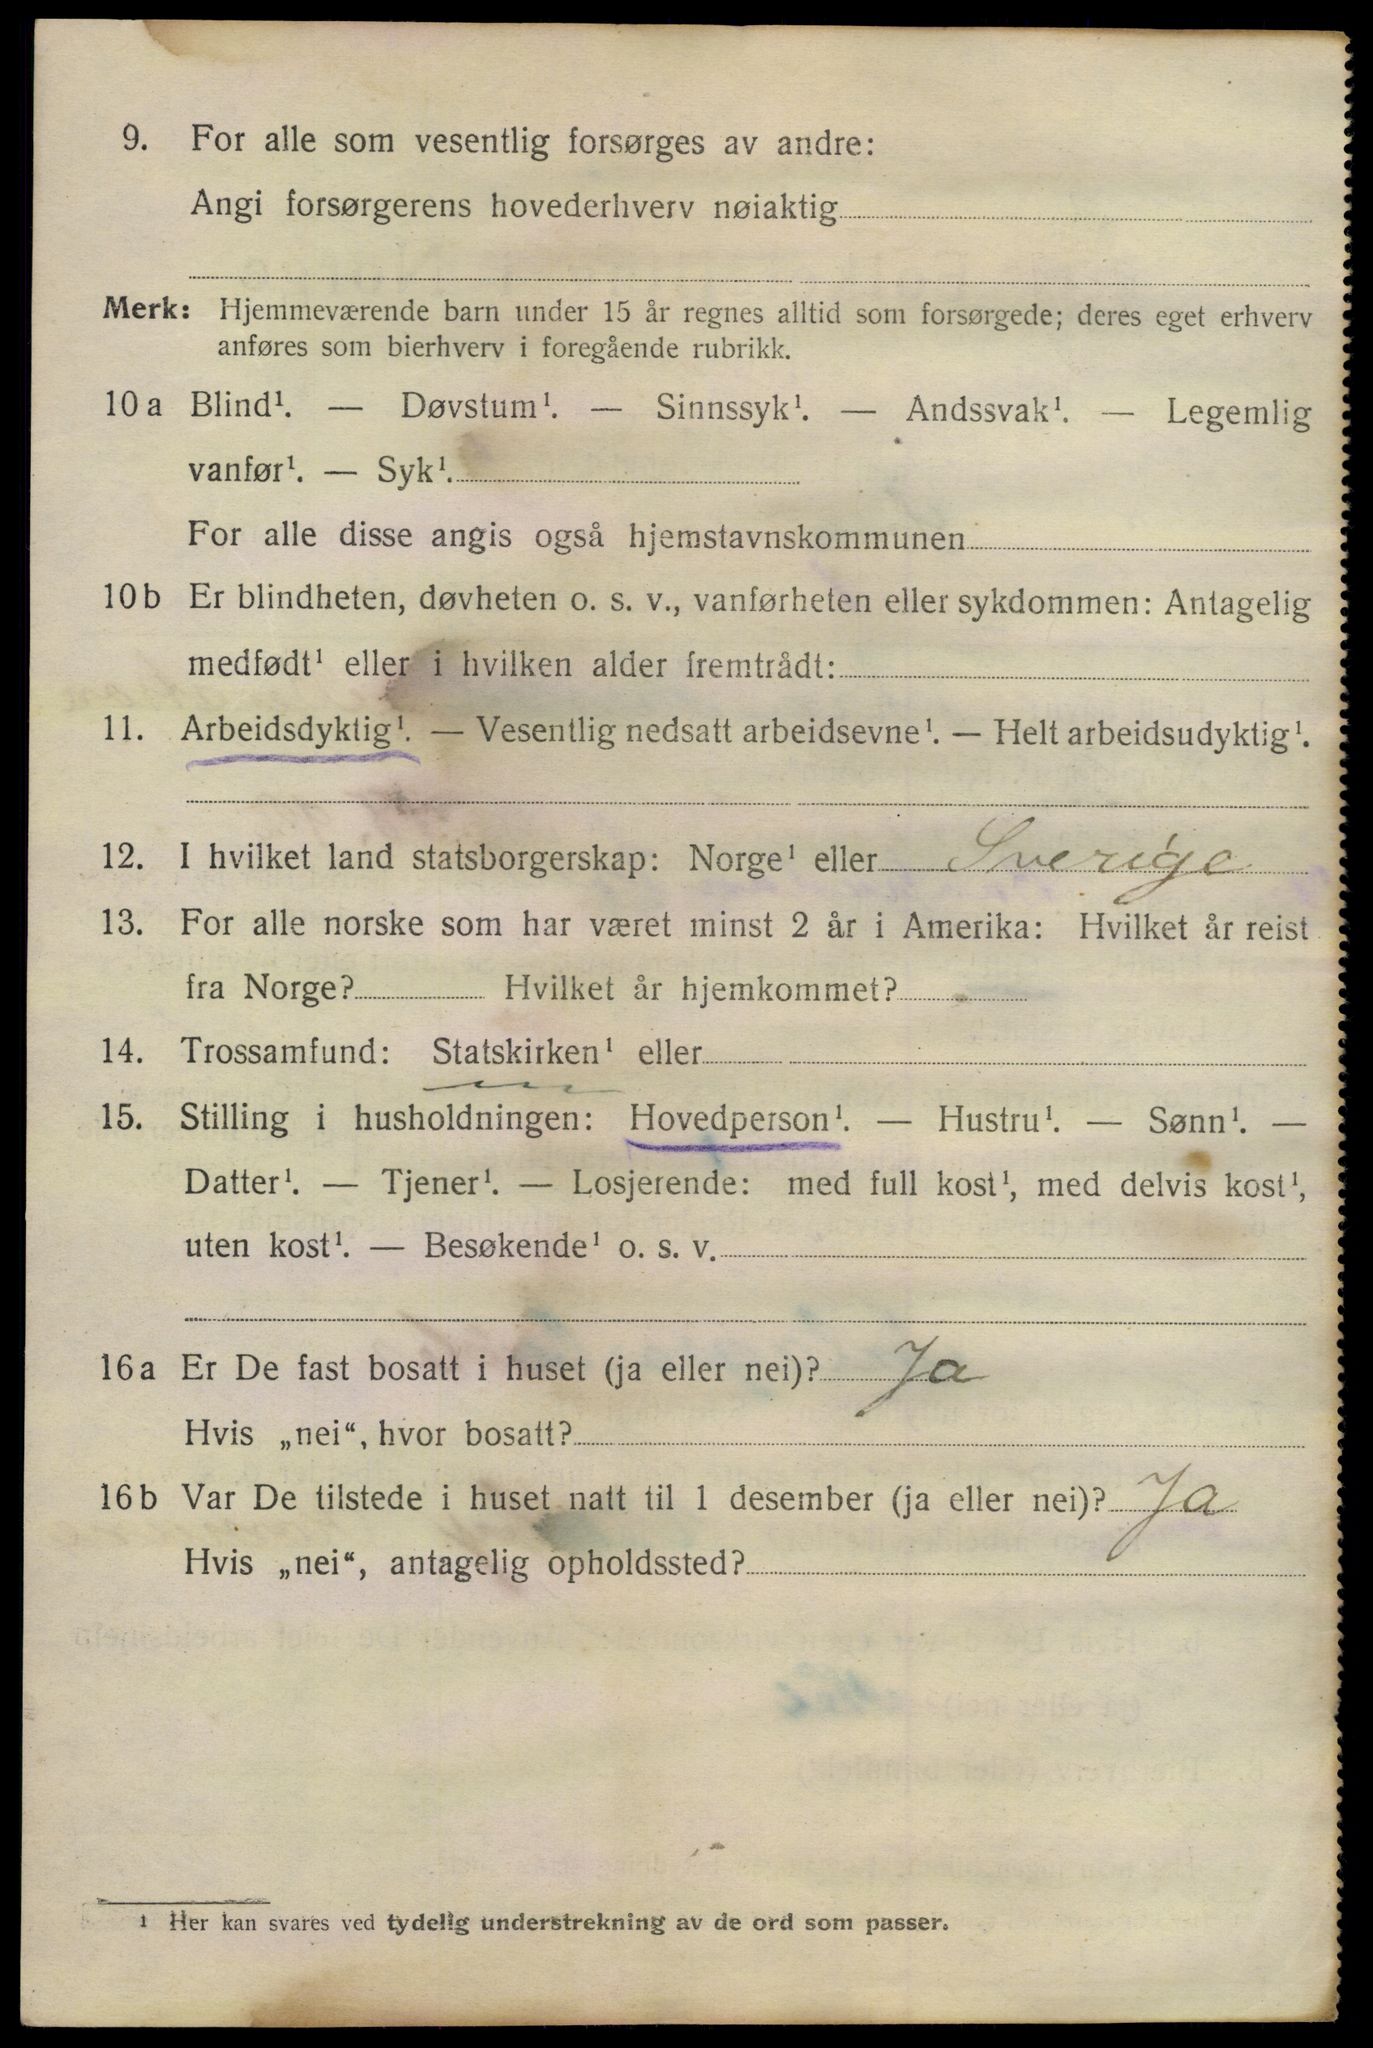 9. For alle som vesentlig forsørges av andre:
Angi forsørgerens hovederhverv nøiaktig
Merk: Hjemmeværende barn under 15 år regnes alltid som forsørgede; deres eget erhverv
anføres som bierhverv i foregående rubrikk.
10 a Blind¹. — Døvstum¹. — Sinnssyk¹. — Andssvak¹. — Legemlig
vanfør¹. — Syk¹.
For alle disse angis også hjemstavnskommunen
10 b Er blindheten, døvheten o. s. v., vanførheten eller sykdommen: Antagelig
medfødt¹ eller i hvilken alder fremtrådt:
11. Arbeidsdyktig¹. — Vesentlig nedsatt arbeidsevne¹. — Helt arbeidsudyktig¹.
12. I hvilket land statsborgerskap: Norge¹ eller Sverige
13. For alle norske som har været minst 2 år i Amerika: Hvilket år reist
fra Norge? Hvilket år hjemkommet?
14. Trossamfund: Statskirken¹ eller
15. Stilling i husholdningen: Hovedperson¹. — Hustru¹. — Sønn¹. —
Datter¹. — Tjener¹. — Losjerende: med full kost¹, med delvis kost¹,
uten kost¹. — Besøkende¹ o. s. v.
16 a Er De fast bosatt i huset (ja eller nei)? Ja
Hvis „nei“, hvor bosatt?
16 b Var De tilstede i huset natt til 1 desember (ja eller nei)? Ja
Hvis „nei“, antagelig opholdssted?
¹ Her kan svares ved tydelig understrekning av de ord som passer.